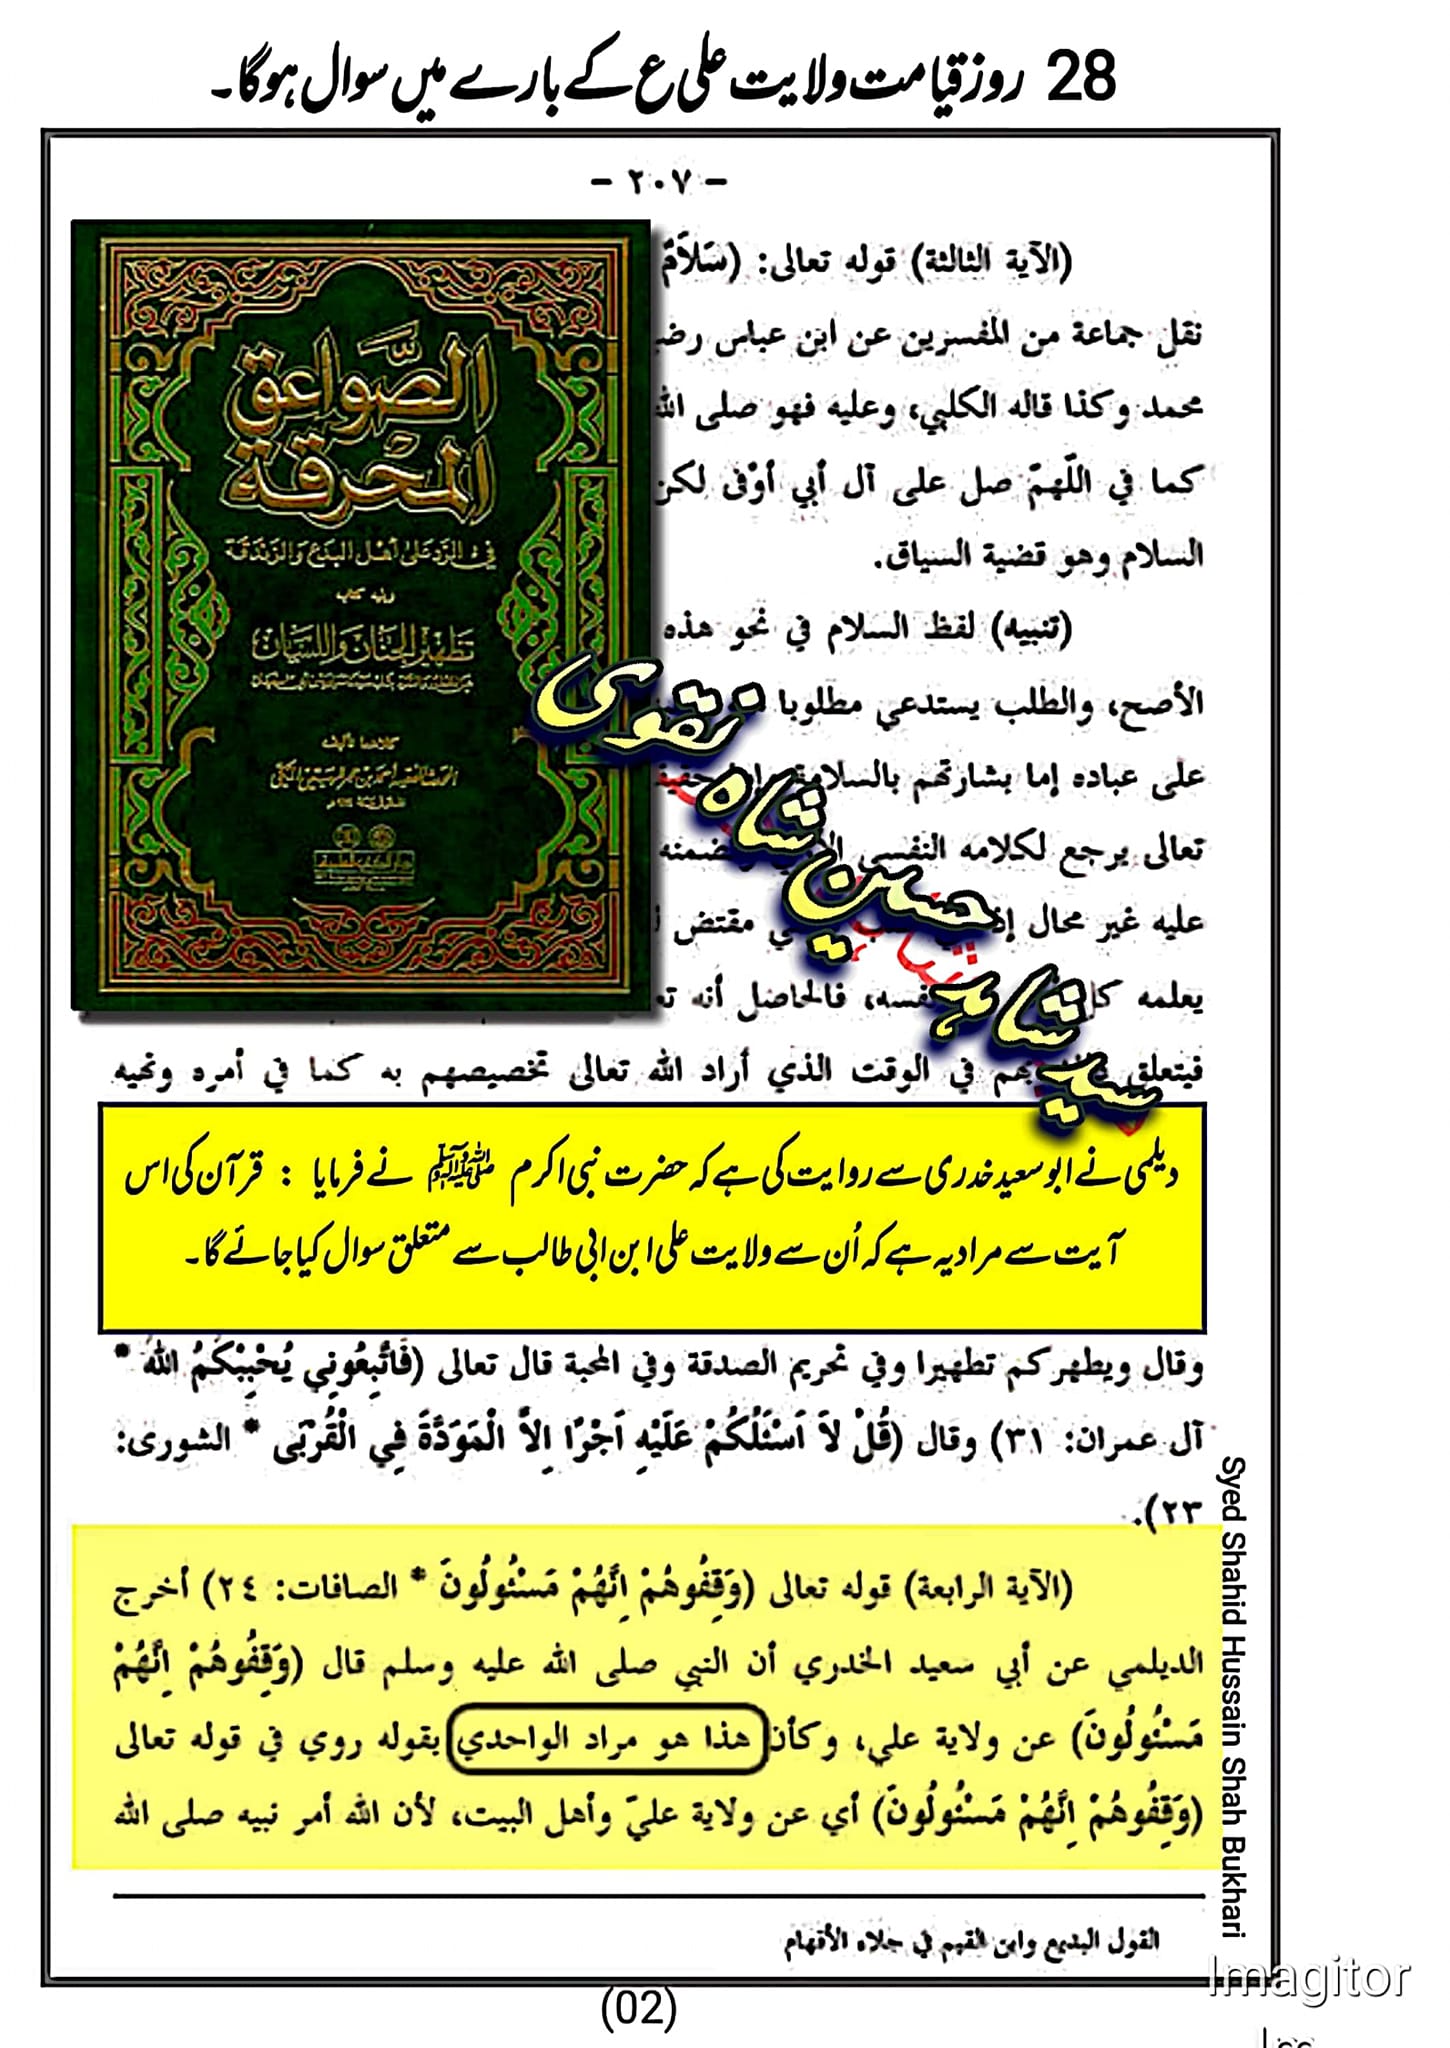 28 روز قیامت ولایت علی ع کے بارے میں سوال ہوگا۔
- ٢٠٧ -
(الآية الثالثة) قوله تعالى: (سَلاَمٌ
نقل جماعة من المفسرين عن ابن عباس رضي
محمد وكذا قاله الكلبي، وعليه فهو صلى الله
كما في اللّهمّ صل على آل أبي أوْفى لكن
السلام وهو قضية السياق.
(تنبيه) لفظ السلام في نحو هذه
الأصح، والطلب يستدعي مطلوبا
على عباده إما بشارتهم بالسلامة
تعالى يرجع لكلامه النفسي
عليه غير محال مقتض
يعلمه نفسه، فالحاصل أنه
فيتعلق في الوقت الذي أراد الله تعالى تخصيصهم به كما في أمره ونهيه
الصَّواعق
المحرقة
في الرد على أهل البدع والزندقة
ويليه كتابه
تطهير الجنان واللسان
كلاهما تأليف
سید شاہد حسین شاہ نقوی
دیلمی نے ابو سعید خدری سے روایت کی ہے کہ حضرت نبی اکرم ﷺ نے فرمایا : قرآن کی اس
آیت سے مراد یہ ہے کہ اُن سے ولایت علی ابن ابی طالب سے متعلق سوال کیا جائے گا۔
وقال ويطهركم تطهيرا وفي تحريم الصدقة وفي المحبة قال تعالى (فَاتَّبِعُونِي يُحْبِبْكُمُ اللهُ *
آل عمران: ٣١) وقال (قُلْ لاَ اَسْئَلُكُمْ عَلَيْهِ اَجْرًا اِلاَّ الْمَوَدَّةَ فِي الْقُرْبَى * الشورى:
٢٣).
(الآية الرابعة) قوله تعالى (وَقِفُوهُمْ اِنَّهُمْ مَسْئُولُونَ * الصافات: ٢٤) أخرج
الديلمي عن أبي سعيد الخدري أن النبي صلى الله عليه وسلم قال (وَقِفُوهُمْ اِنَّهُمْ
مَسْئُولُونَ) عن ولاية علي، وكأن هذا هو مراد الواحدي بقوله روي في قوله تعالى
(وَقِفُوهُمْ اِنَّهُمْ مَسْئُولُونَ) أي عن ولاية عليّ وأهل البيت، لأن الله أمر نبيه صلى الله
القول البديع وابن القيم في جلاء الأفهام
Syed Shahid Hussain Shah Bukhari
Imagitor
(02)